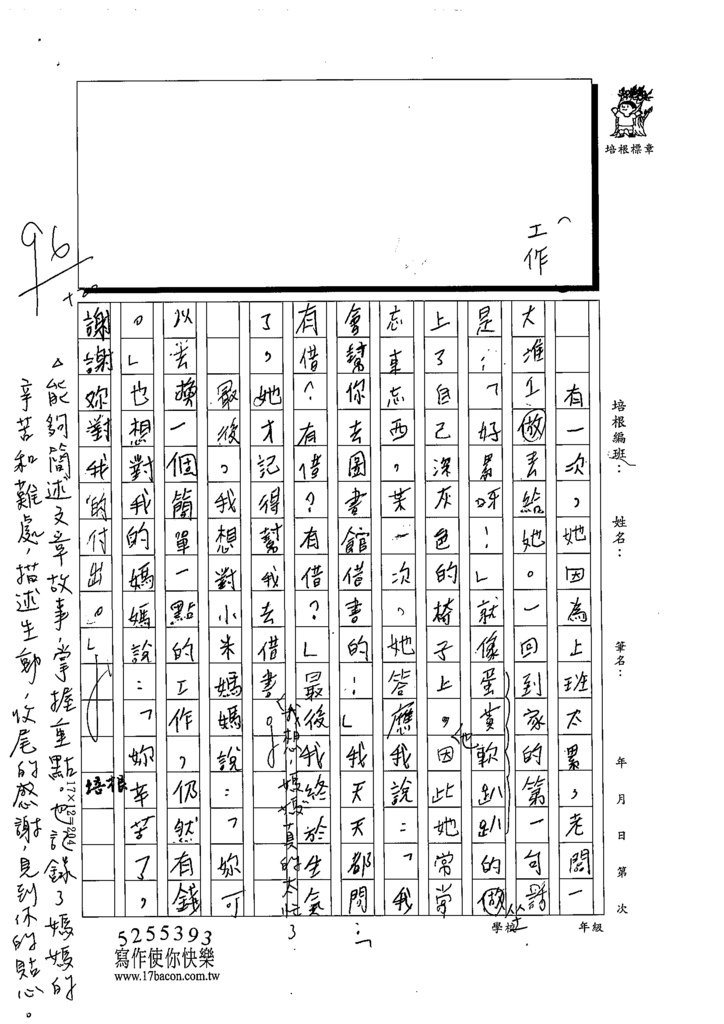 培根標章
工作
培根編班：　姓名：　筆名：　年　月　日　第　次
學校：　年級
有一次，她因為上班太累，老闆一
大堆工做丟給她。一回到家的第一句話
是：「好累呀！」就像蛋黃軟趴趴的做
坐
上了自己深灰色的椅子上，因此她常常
也
忘東忘西，某一次，她答應我說：「我
會幫你去圖書館借書的！」我天天都問：「
有借？有借？有借？」最後我終於生氣
了，她才記得幫我去借書。
我想，媽媽真的太忙了
最後，我想對小米媽媽說：「妳可
以去換一個簡單一點的工作，仍然有錢
。」也想對我的媽媽說：「妳辛苦了，
謝謝妳對我的付出。」
培根
17×12=204
96
△能夠簡述文章故事，掌握重點。也記錄了媽媽的
辛苦和難處，描述生動，收尾的感謝，見到你的貼心。
5255393
寫作使你快樂
www.17bacon.com.tw